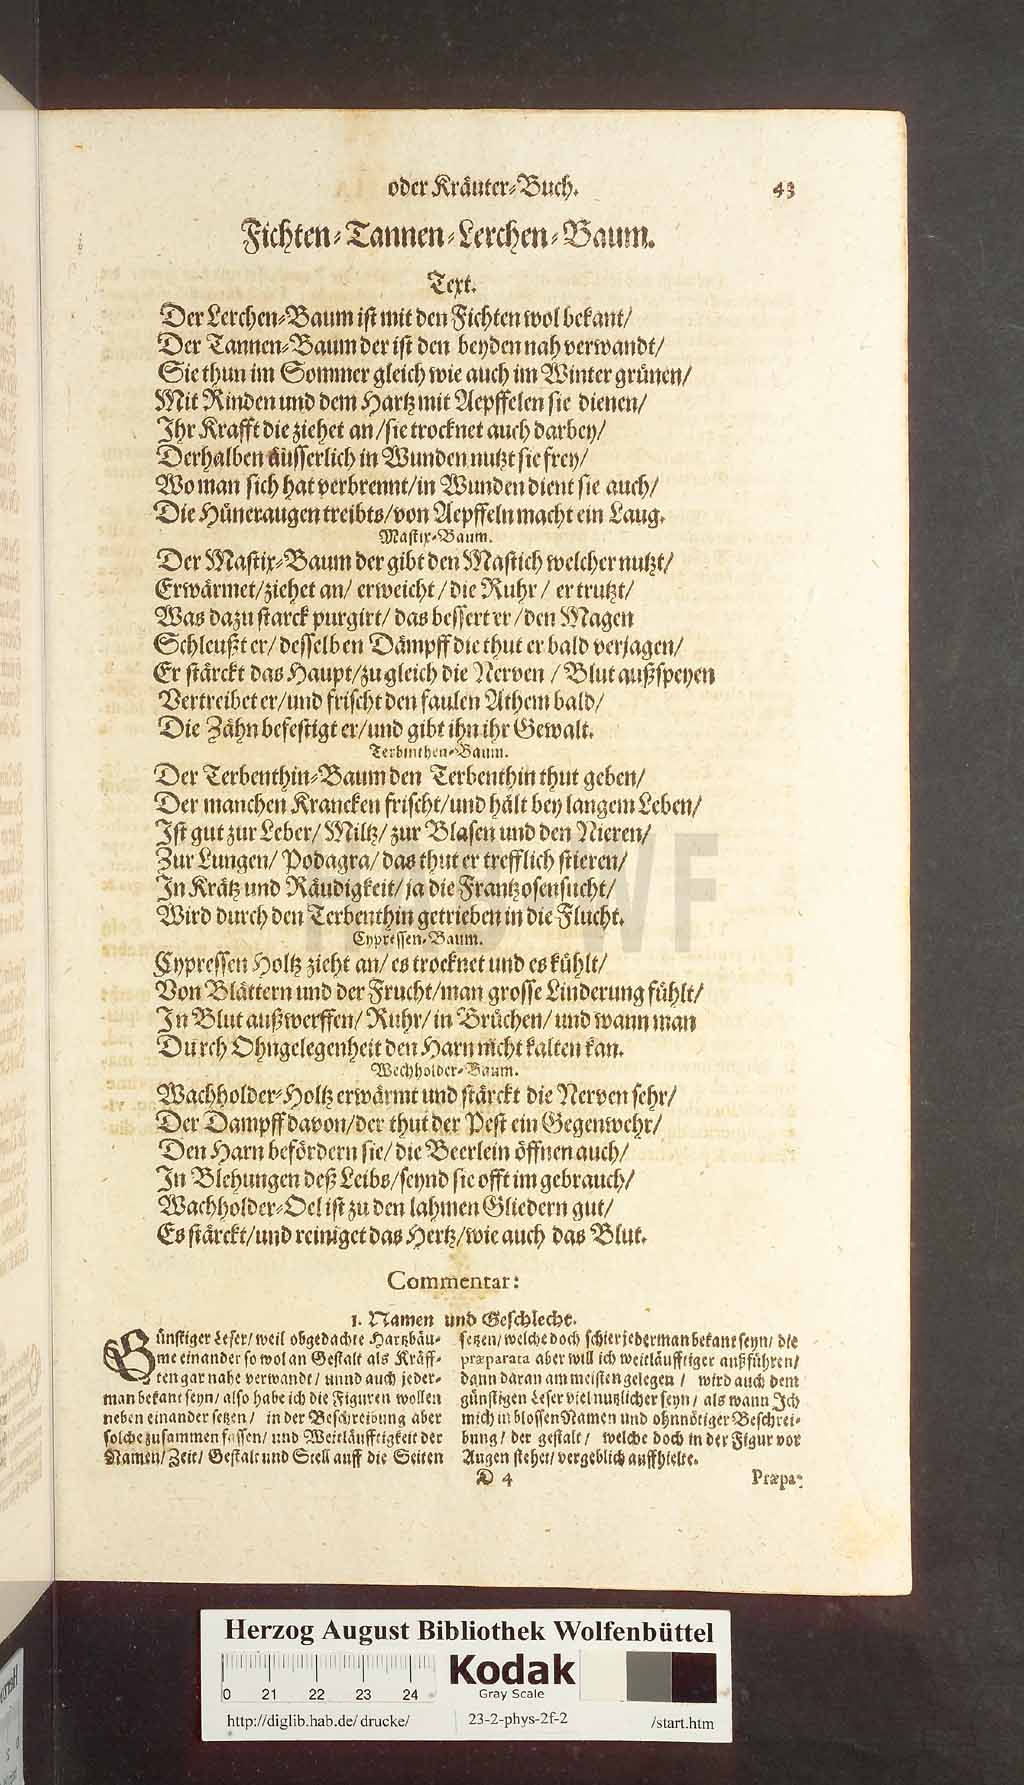 oder Kräuter-Buch. 43
Fichten-Tannen-Lerchen-Baum.
Text.
Der Lerchen-Baum ist mit den Fichten wol bekant/
Der Tannen-Baum der ist den beyden nah verwandt/
Sie thun im Sommer gleich wie auch im Winter grünen/
Mit Rinden und dem Hartz mit Aepffelen sie dienen/
Ihr Krafft die ziehet an/ sie trocknet auch darbey/
Derhalben äusserlich in Wunden nutzt sie frey/
Wo man sich hat verbrennt/ in Wunden dient sie auch/
Die Hüneraugen treibts/ von Aepffeln macht ein Laug.
Mastix-Baum.
Der Mastix-Baum der gibt den Mastich welcher nutzt/
Erwärmet/ ziehet an/ erweicht/ die Ruhr/ er trutzt/
Was dazu starck purgirt/ das bessert er/ den Magen
Schleußt er/ desselben Dämpff die thut er bald verjagen/
Er stärckt das Haupt/ zugleich die Nerven/ Blut außspeyen
Vertreibet er/ und frischt den faulen Athem bald/
Die Zähn befestigt er/ und gibt ihn ihr Gewalt.
Terbinthen-Baum.
Der Terbenthin-Baum den Terbenthin thut geben/
Der manchen Krancken frischt/ und hält bey langem Leben/
Ist gut zur Leber/ Miltz/ zur Blasen und den Nieren/
Zur Lungen/ Podagra/ das thut er trefflich stieren/
In Krätz und Räudigkeit/ ja die Frantzosensucht/
Wird durch den Terbenthin getrieben in die Flucht.
Cypressen-Baum.
Cypressen Holtz zieht an/ es trocknet und es kühlt/
Von Blättern und der Frucht/ man grosse Linderung fühlt/
In Blut außwerffen/ Ruhr/ in Brüchen/ und wann man
Durch Ohngelegenheit den Harn nicht kalten kan.
Wechholder-Baum.
Wachholder-Holtz erwärmt und stärckt die Nerven sehr/
Der Dampff davon/ der thut der Pest ein Gegenwehr/
Den Harn befördern sie/ die Beerlein öffnen auch/
In Blehungen deß Leibs/ seynd sie offt im gebrauch/
Wachholder-Oel ist zu den lahmen Gliedern gut/
Es stärckt/ und reiniget das Hertz/ wie auch das Blut.
Commentar:
1. Namen und Geschlecht.
Günstiger Leser/ weil obgedachte Hartzbäu-
me einander so wol an Gestalt als Kräff-
ten gar nahe verwandt/ unnd auch jeder-
man bekant seyn/ also habe ich die Figuren wollen
neben einander setzen/ in der Beschreibung aber
solche zusammen fassen/ und Weitläufftigkeit der
Namen/ Zeit/ Gestalt und Stell auff die Seiten
setzen/ welche doch schier jederman bekant seyn/ die
præparata aber will ich weitläufftiger außführen/
dann daran am meisten gelegen/ wird auch dem
günstigen Leser viel nutzlicher seyn/ als wann Ich
mich in blossen Namen und ohnnötiger Beschrei-
bung/ der gestalt/ welche doch in der Figur vor
Augen stehet/ vergeblich auffhielte.
D 4 Præpa-
HAB WF
Herzog August Bibliothek Wolfenbüttel
0 21 22 23 24
Kodak
Gray Scale
http://diglib.hab.de/drucke/ 23-2-phys-2f-2 /start.htm